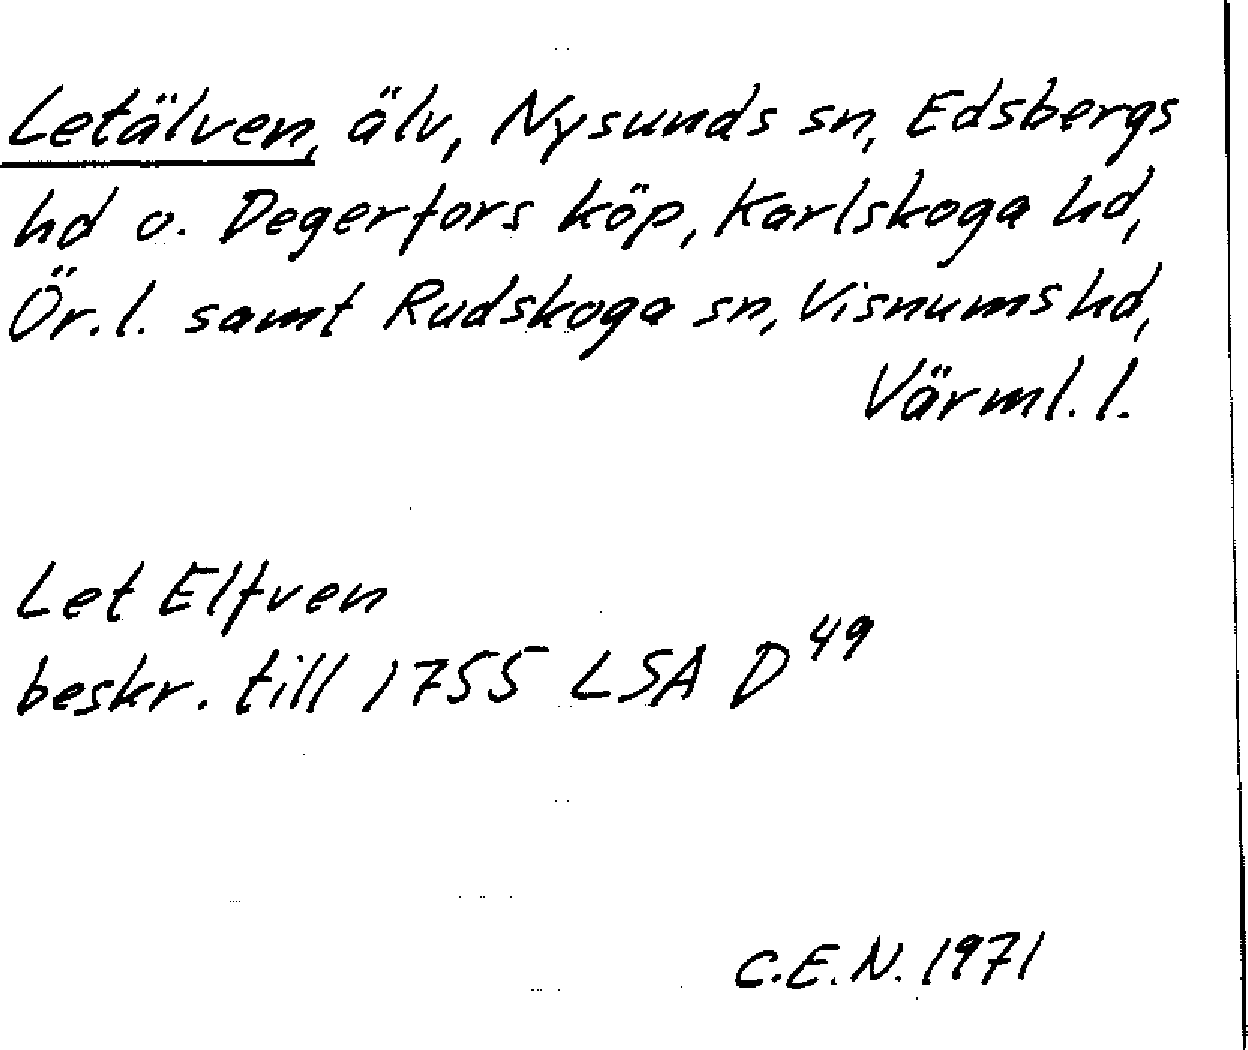 Letälven, älv, Nysunds sn, Edsbergs
hd o. Degerfors köp, Karlskoga hd,
Ör. l. samt Rudskoga sn, Visnums hd,
Värml. l.
Let Elfven
beskr. till 1755 LSA D 49
C.E.N. 1971